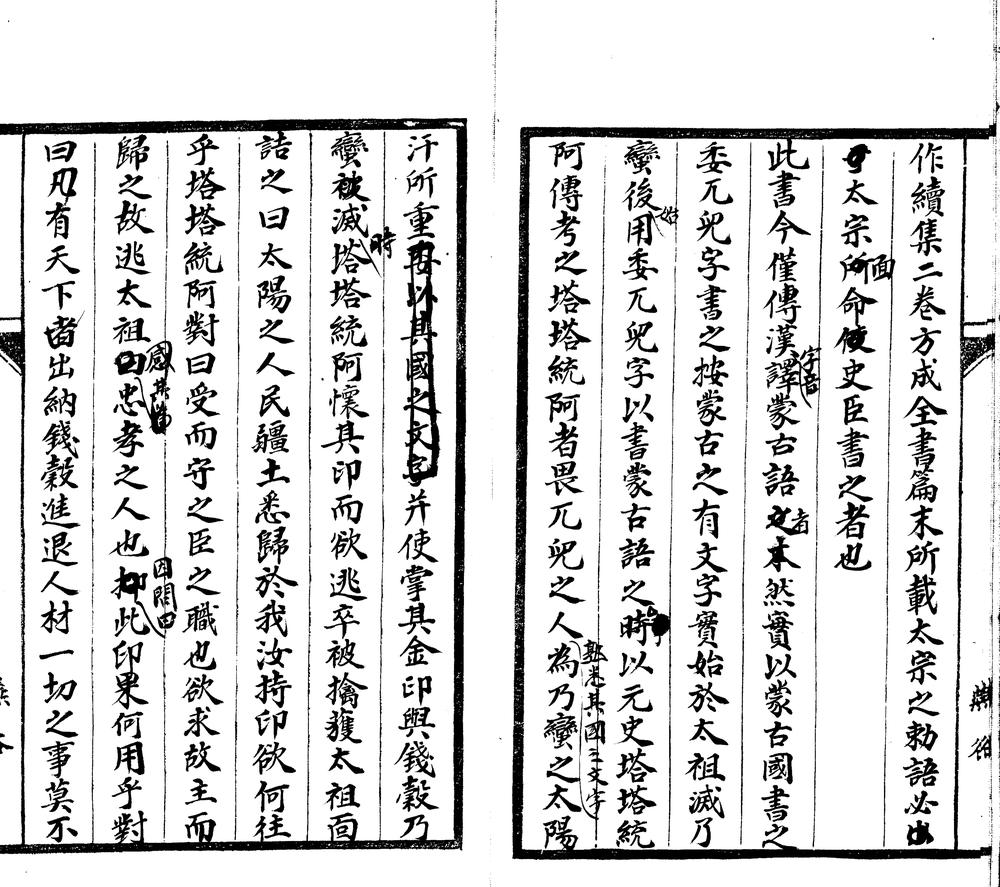 作續集二卷方成全書篇末所載太宗之勅語必出
太宗面命史臣書之者也
此書今僅傳漢字音譯蒙古語者然實以蒙古國書之
委兀兒字書之按蒙古之有文字實始於太祖滅乃
蠻後始用委兀兒字以書蒙古語之時以元史塔塔統
阿傳考之塔塔統阿者畏兀兒之人熟悉其國之文字為乃蠻之太陽
汗所重且以其國之文字并使掌其金印與錢穀乃
蠻被滅時塔塔統阿懷其印而欲逃卒被擒獲太祖面
詰之曰太陽之人民疆土悉歸於我汝持印欲何往
乎塔塔統阿對曰受而守之臣之職也欲求故主而
歸之故逃太祖感其忠曰忠孝之人也因問曰此印果何用乎對
曰凡有天下者出納錢穀進退人材一切之事莫不